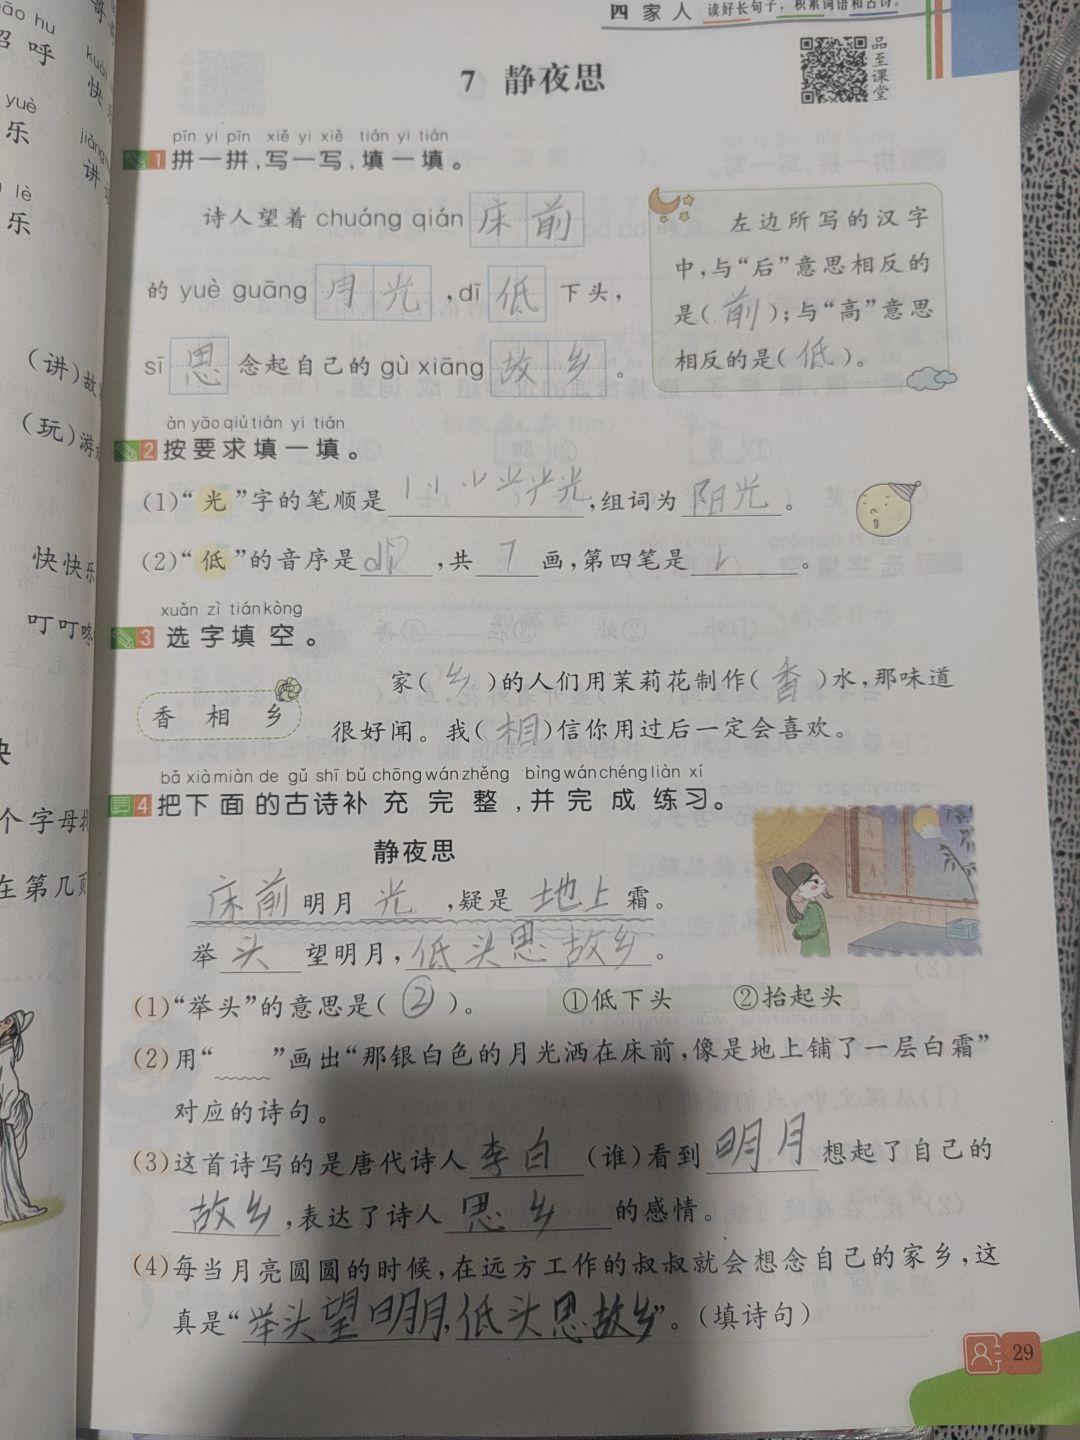 四 家 人 读好长句子，积累词语和古诗。
品至课堂
7 静夜思
pīn yi pīn xiě yi xiě tián yi tián
1 拼一拼，写一写，填一填。
诗人望着 chuáng qián 床前
的 yuè guāng 月光，dī 低 下头，
sī 思 念起自己的 gù xiāng 故乡。
左边所写的汉字
中，与“后”意思相反的
是（前）；与“高”意思
相反的是（低）。
àn yāo qiú tián yi tián
2 按要求填一填。
(1)“光”字的笔顺是，组词为 阳光。
(2)“低”的音序是，共 7 画，第四笔是。
xuǎn zì tián kòng
3 选字填空。
香 相 乡
家（乡）的人们用茉莉花制作（香）水，那味道
很好闻。我（相）信你用过后一定会喜欢。
bǎ xià miàn de gǔ shī bǔ chōng wán zhěng bìng wán chéng liàn xí
4 把下面的古诗补充完整，并完成练习。
静夜思
床前明月光，疑是地上霜。
举头望明月，低头思故乡。
(1)“举头”的意思是（②）。 ①低下头 ②抬起头
(2)用“ ”画出“那银白色的月光洒在床前，像是地上铺了一层白霜”
对应的诗句。
(3)这首诗写的是唐代诗人李白（谁）看到明月想起了自己的
故乡，表达了诗人思乡的感情。
(4)每当月亮圆圆的时候，在远方工作的叔叔就会想念自己的家乡，这
真是“举头望明月，低头思故乡”。（填诗句）
29
hu
呼
yuè
乐
lè
乐
kuài
快
讲
（讲）故
（玩）游
快快乐
叮叮咚
个字母
在第几页